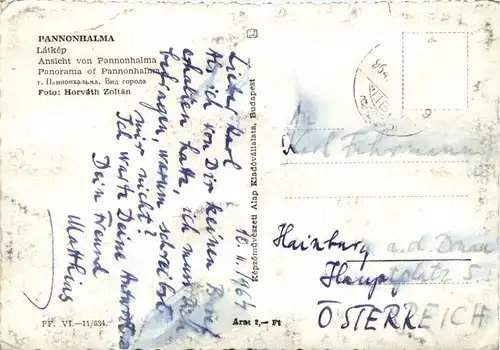 PANNONHALMA
Látkép
Ansicht von Pannonhalma
Panorama of Pannonhalma
г. Паннонхальма. Вид города
Foto: Horváth Zoltán
FF. VI.—11/634.
10. II. 1964
Lieber Karl
Als ich von Dir keinen Brief
erhalten hatte, ich muss Dich
befragen, warum schreibst
mir nicht?
Ich warte Deine Antwort
Dein Freund
Matthias
Képzőművészeti Alap Kiadóvállalata, Budapest
Ára: 2,— Ft
An
Karl Fuhrmann
Hainburg a. d. Donau
Hauptplatz
ÖSTERREICH